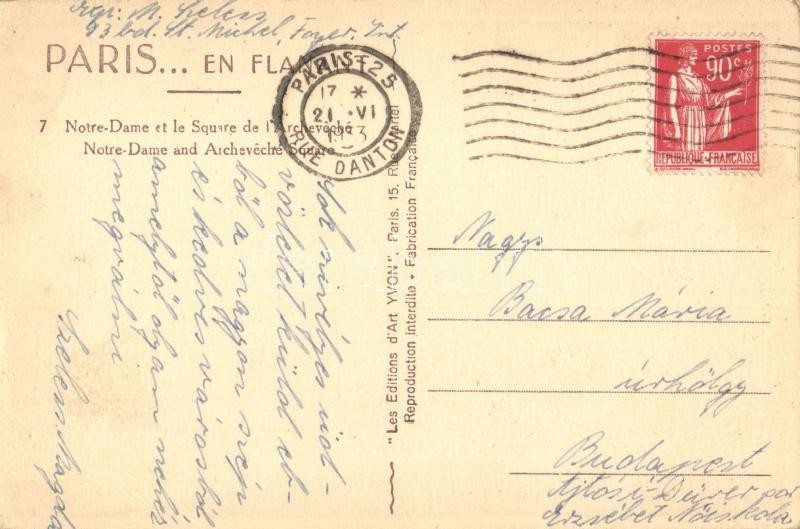 M. Szeless
93 bd. St. Michel, Foyer Int.
PARIS... EN FLANANT
7 Notre-Dame et le Square de l'Archevêché
Notre-Dame and Archevêche Square
PARIS 25
17 *
21 VI
RUE DANTON
POSTES
90c
REPUBLIQUE FRANÇAISE
"Les Editions d'Art YVON", Paris, 15, Rue
Reproduction interdite - Fabrication Française
Sok szívélyes üd-
vözletet küld eb-
ből a nagyon szép
és kedves városból
amelytől olyan nehéz
megválni
Szeless Magda
Nagys.
Bacsa Mária
úrhölgy
Budapest
Ajtósi-Dürer sor
Erzsébet Nőiskola